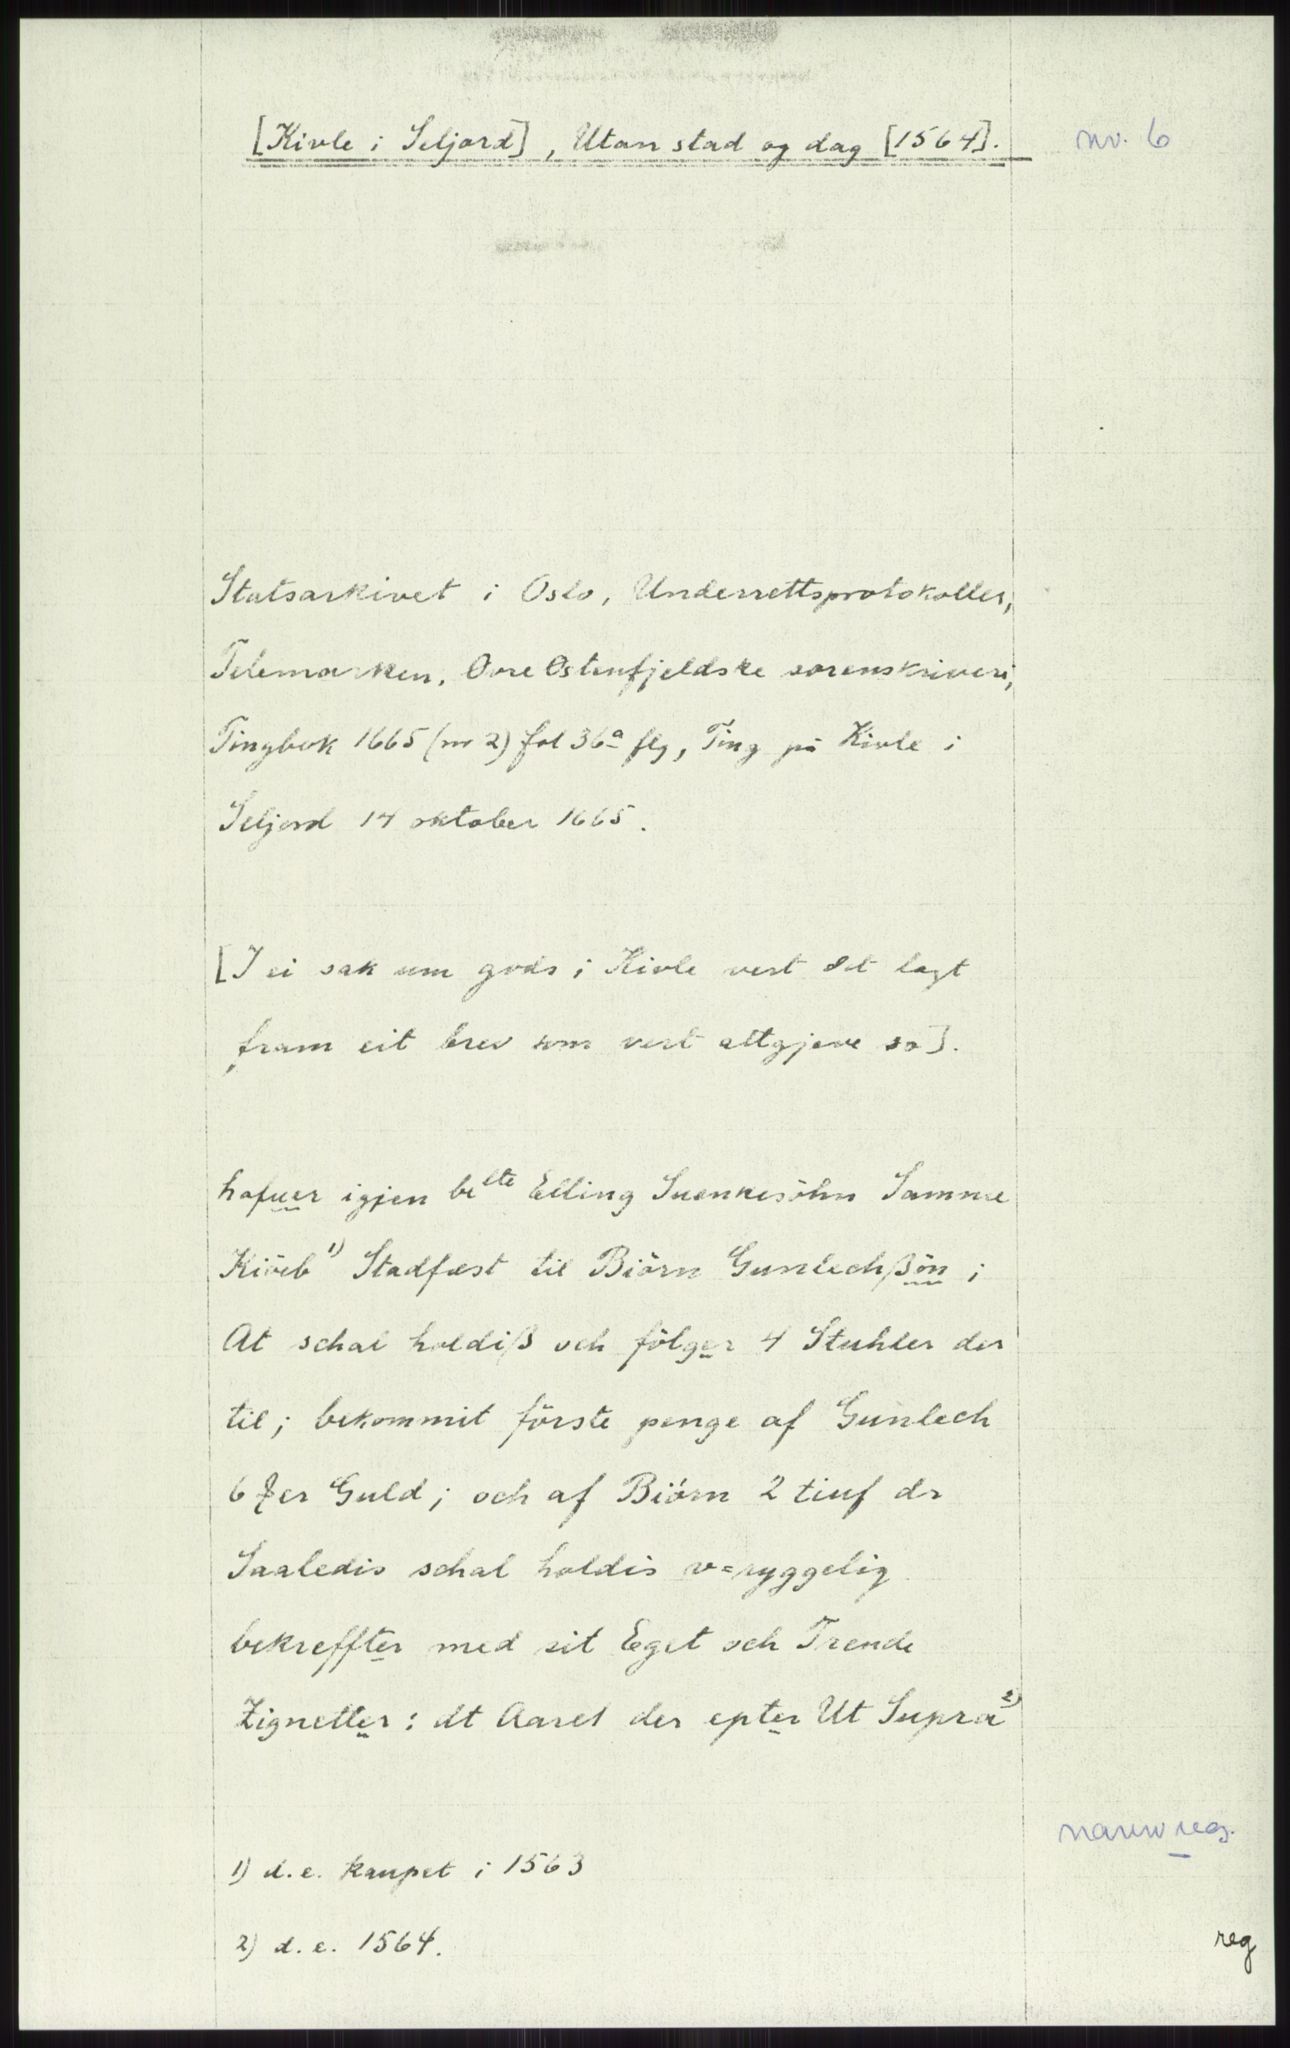 [Kivle i Seljord], Utan stad og dag [1564].
nr. 6
Statsarkivet i Oslo, Underrettsprotokoller,
Telemarken, Øvre Østenfjeldske sorenskriveri,
Tingbok 1665 (nr 2) fol 36a flg, Ting på Kivle i
Seljord 14 oktober 1665.
[I ei sak um gods i Kivle vert det lagt
fram eit brev som vert attgjeve so].
hafuer igjen belte Elling Suenkesöhn Samme
Kiöeb 1) Stadfæst til Biörn Gunlechßön ;
At schal holdiß och fölger 4 Stuhler der
til ; bekommit förste penge af Gunlech
6 er Guld ; och af Biörn 2 tiuf dr
Saaledis schal holdis v=ryggelig
bekreffter med sit Eget och Trende
Zignetter : dt Aaret der epter Ut Supra 2)
1) d.e. kaupet i 1563
2) d.e. 1564.
reg